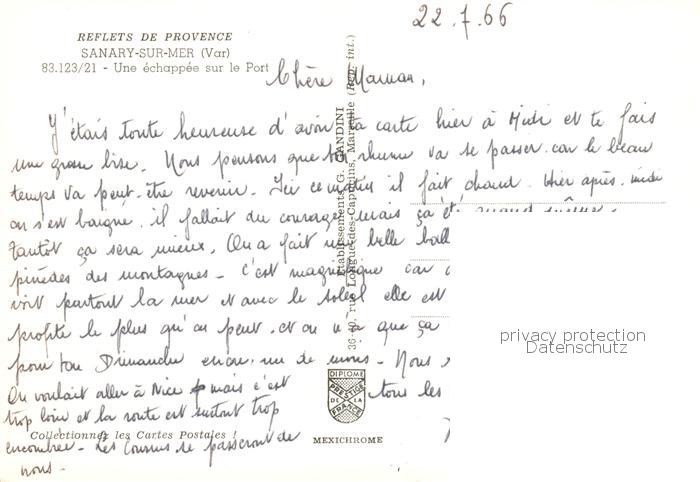 22.7.66
REFLETS DE PROVENCE
SANARY-SUR-MER (Var)
83.123/21 - Une échappée sur le Port
Chère Maman,
J'étais toute heureuse d'avoir ta carte hier à Midi et te fais
une grosse bise. Nous pensons que ton rhume va se passer car le beau
temps va peut-être revenir. Ici ce matin il fait chaud. Hier après-midi
on s'est baigné, il fallait du courage, mais ça été quand même.
Tantôt ça sera mieux. On a fait une belle ball
pinèdes des montagnes - c'est magnifique car
voit partout la mer et avec le soleil elle est
profite le plus qu'on peut. et on que ça
pour ton Dimanche encore une de moins - Nous
On voulait aller à Nice mais c'est tous les
trop loin et la route est surtout trop
encombrée - Les Cousins se passeront de
nous -
Etablissements G. GANDINI
36-40, rue Longue-des-Capucins, Marseille (Rep. int.)
DIPLOME
PRESTIGE
DE LA
FRANCE
Collectionnez les Cartes Postales !
MEXICHROME
privacy protection
Datenschutz